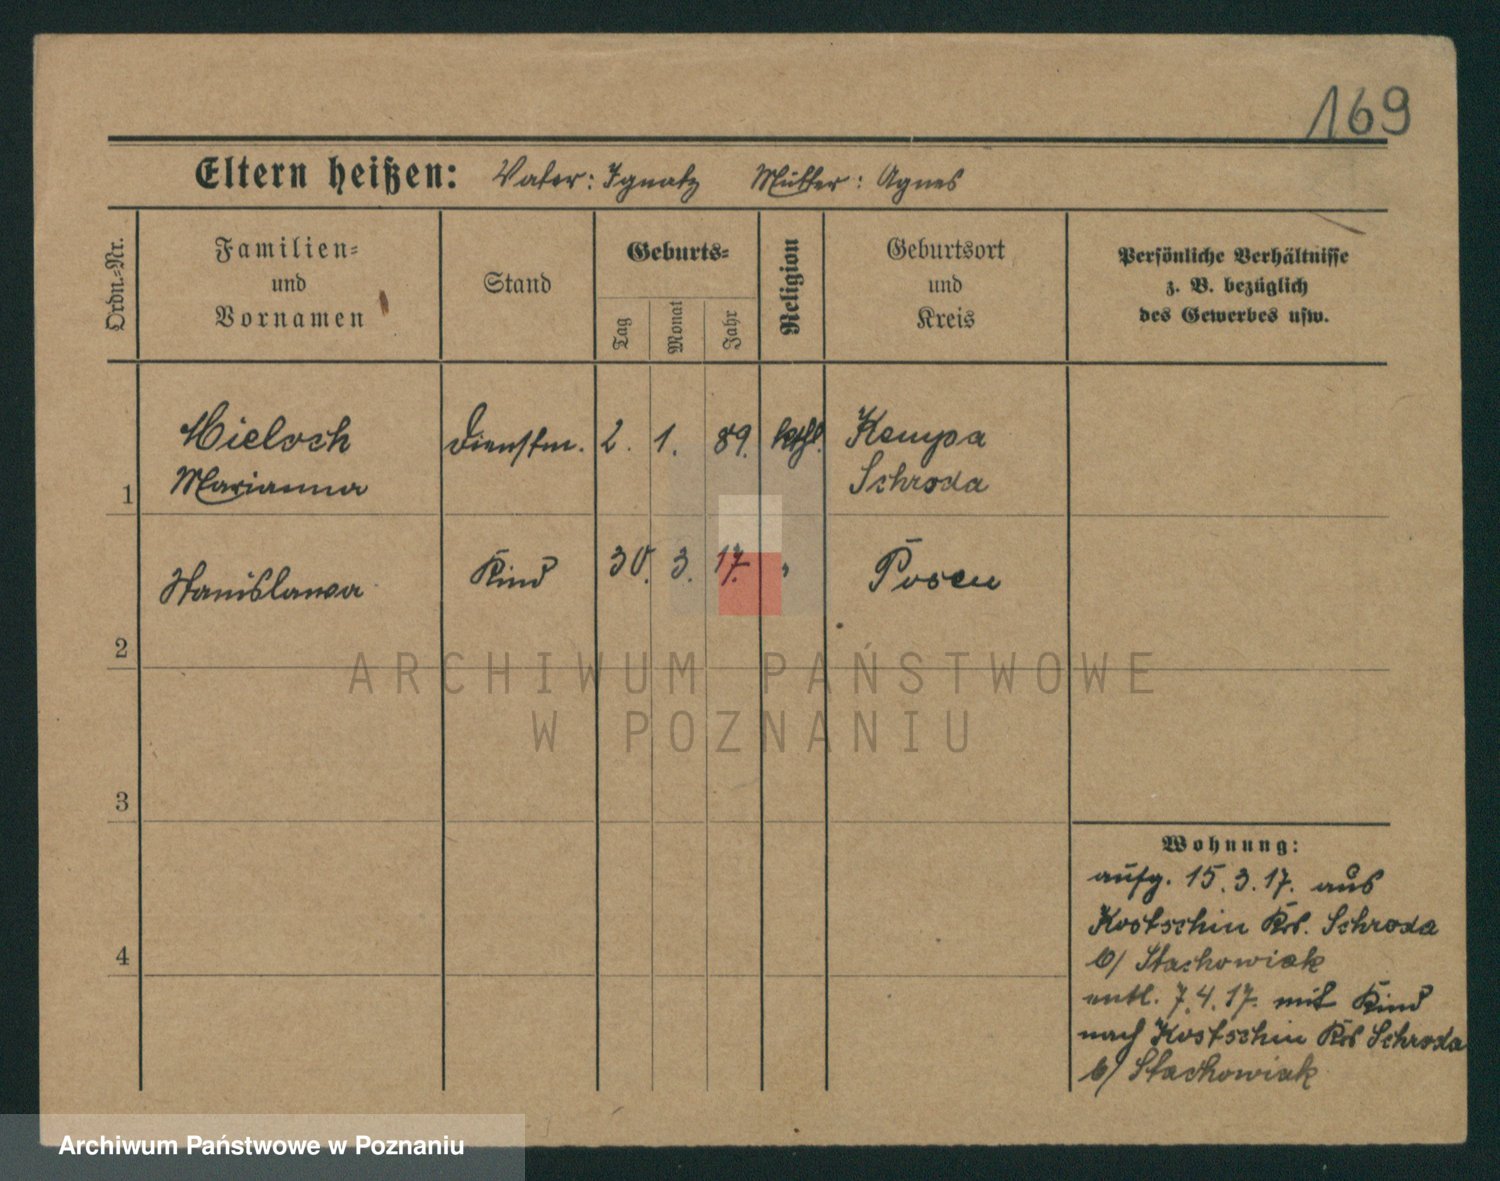 169
Eltern heißen: Vater: Ignatz Mutter: Agnes
Ordn.-Nr.
Familien- und Vornamen
Stand
Geburts-
Tag
Monat
Jahr
Religion
Geburtsort und Kreis
Persönliche Verhältnisse
z. B. bezüglich
des Gewerbes usw.
Mieloch Dienstm. 2. 1. 89. kath. Kempa
1 Marianna Schroda
Stanislawa Kind 30. 3. 17. " Posen
2
ARCHIWUM PAŃSTWOWE
W POZNANIU
3
4
Wohnung:
aufg. 15.3.17. aus
Kostschin Krs. Schroda
b/ Stachowiak
entl. 7.4.17. mit Kind
nach Kostschin Krs Schroda
b/ Stachowiak
Archiwum Państwowe w Poznaniu